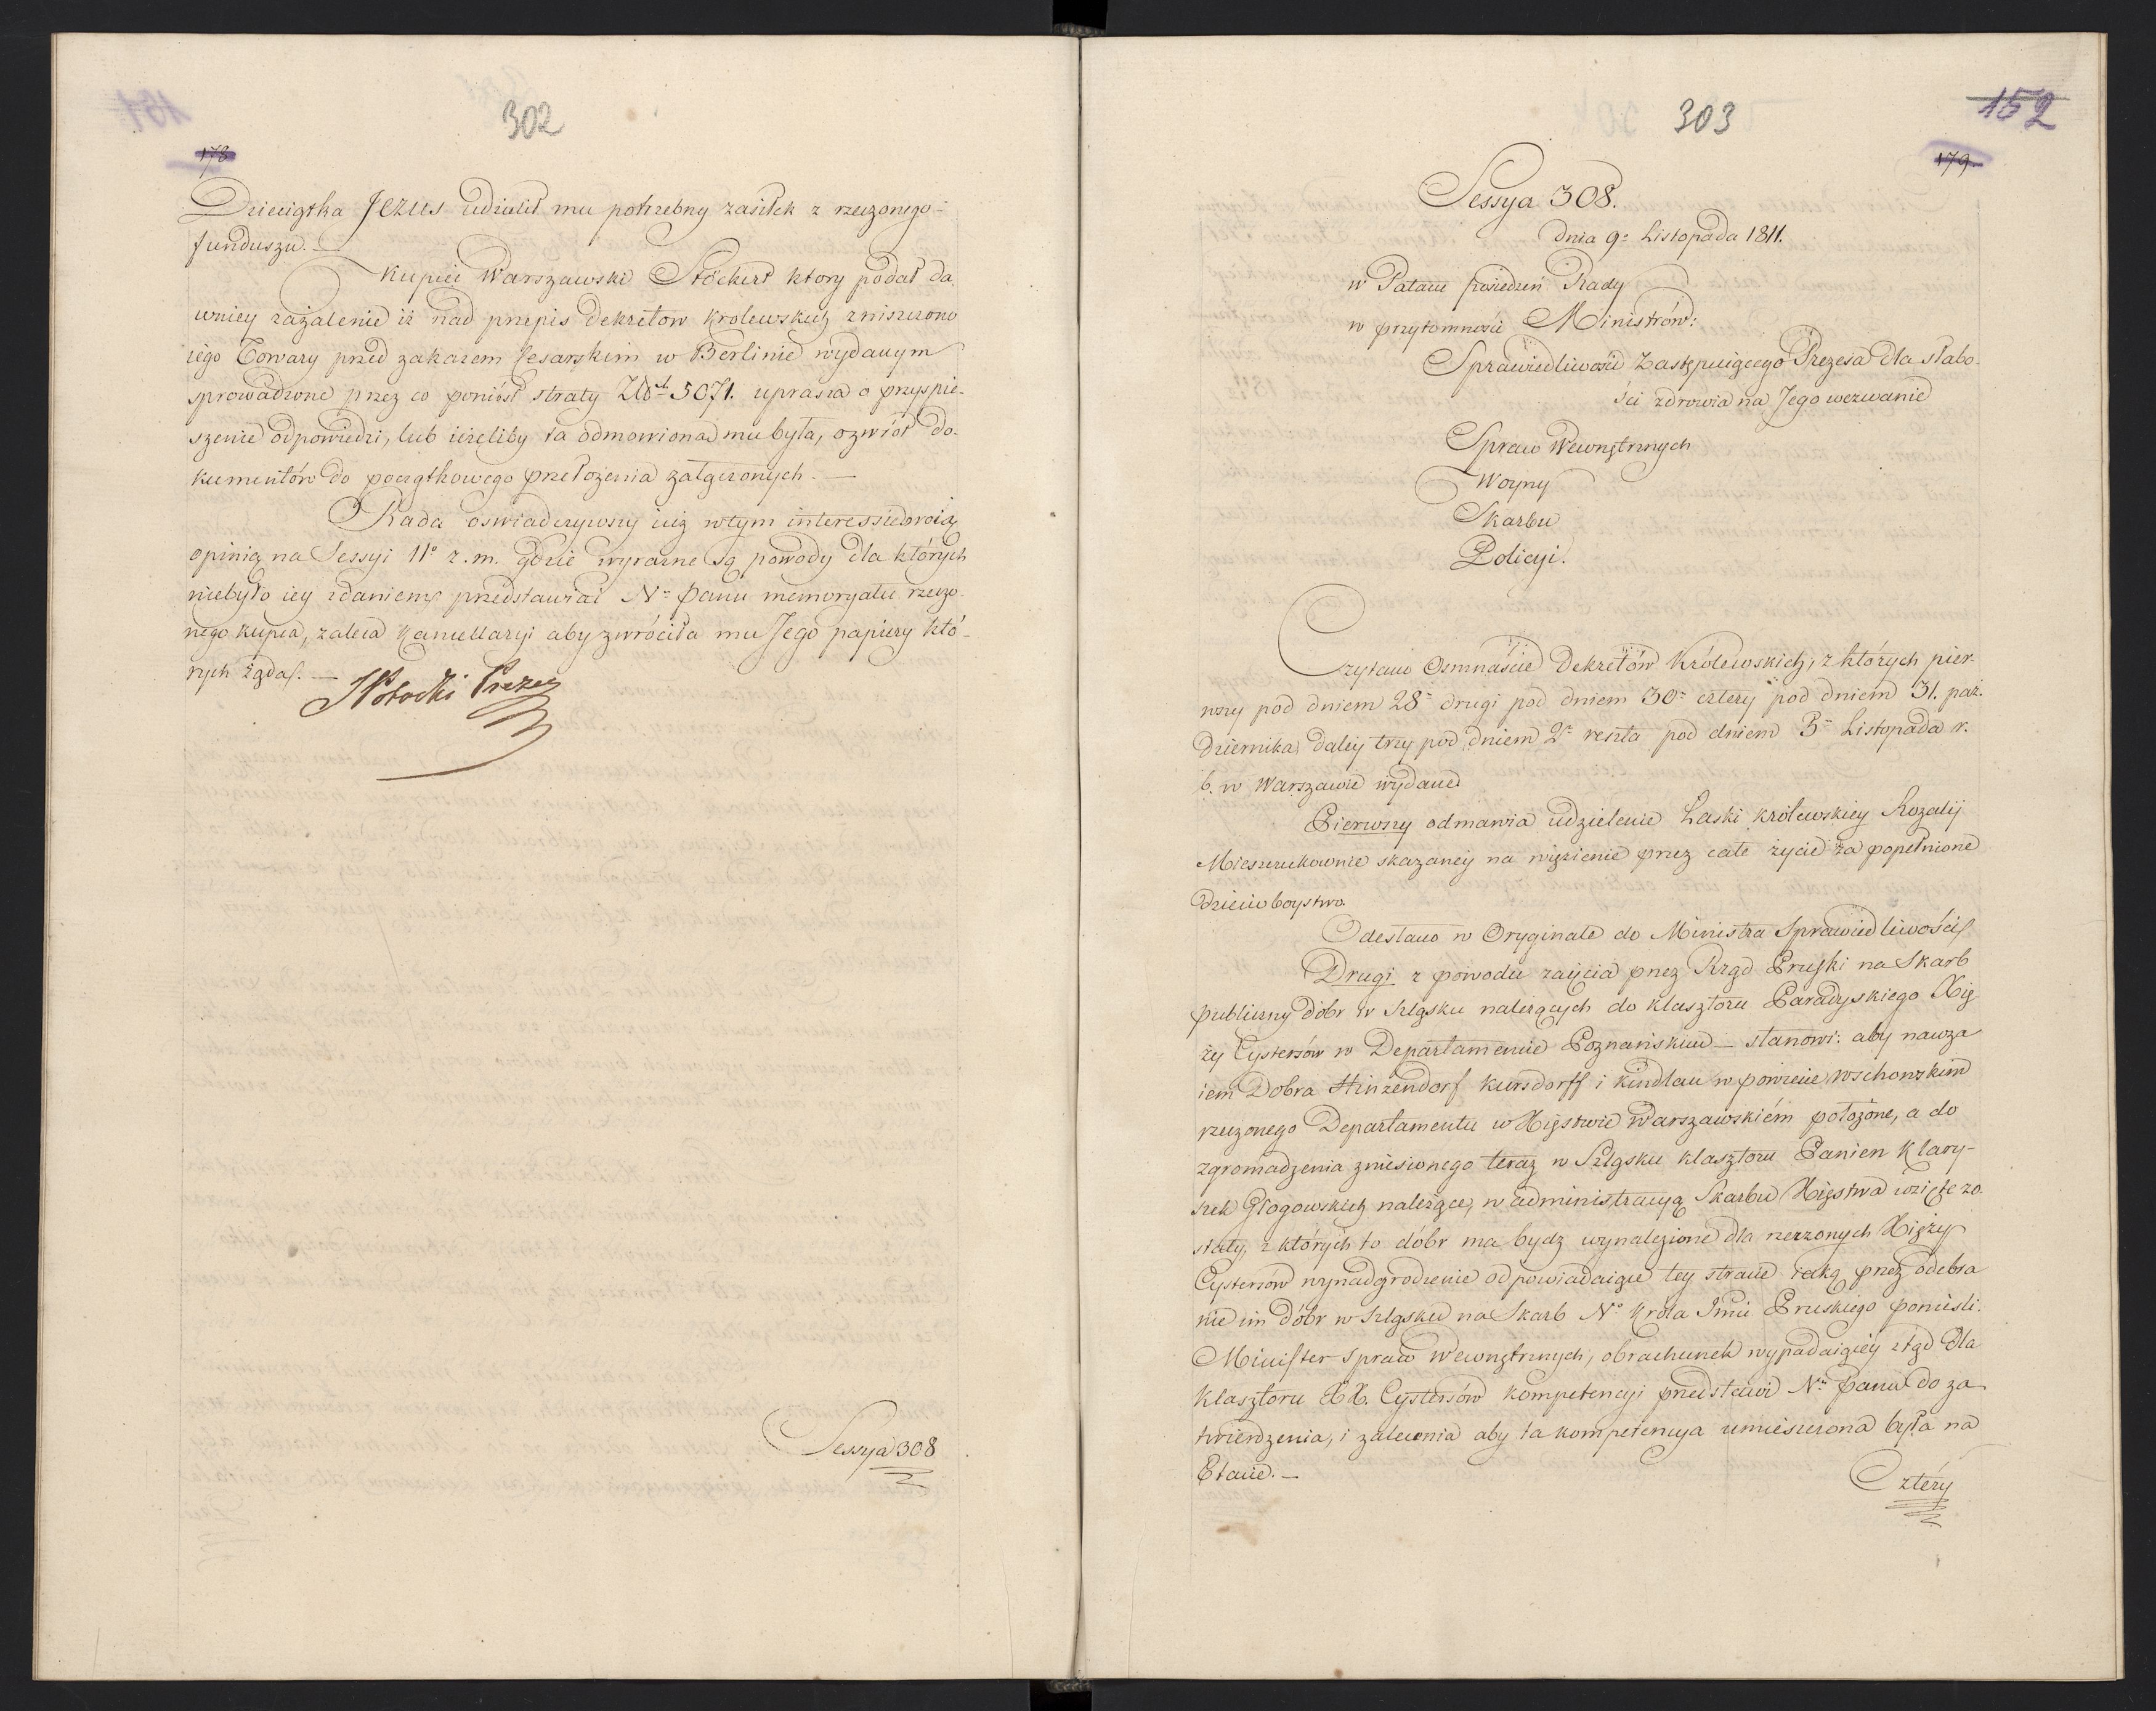 302
178
Dzieciątka Jezus udzielił mu potrzebny zasiłek z rzeczonego
funduszu. —
Kupiec Warszawski Stöckert ktory podał da
wniey zażalenie iż nad przepis Dekretow Krolewskich zniszczono
iego Towary przed zakazem Cesarskim w Berlinie wydanym
sprowadzone przez co poniósł straty 5071. uprasza o przyspie-
szenie odpowiedzi, lub ieżeliby ta odmowiona mu była, o zwrót do-
kumentów do początkowego przełożenia załączonych. —
Rada oswiadczywszy iuż w tym interessie swoią
opinią na Sessyi 11° z. m. gdzie wyrazne są powody dla których
niebyło iey zdaniem przedstawiać No Panu memoryału rzeczo-
nego kupca, zaleca Kancellaryi aby zwróciła mu Jego papiery któ-
rych żąda. —
SPotocki Prezes
Sessya 308
303
152
179.
Sessya 308.
Dnia 9o Listopada 1811.
w Pałacu Posiedzeń Rady
w przytomności Ministrów:
Sprawiedliwości Zastępuiącego Prezesa dla słabo-
ści zdrowia na Jego wezwanie
Spraw Wewnętrznych
Woyny
Skarbu
Policyi.
Czytano Osmnaście Dekretów Królewskich, z których pier-
wszy pod dniem 28o drugi pod dniem 30o cztery pod dniem 31. paź-
dziernika, daley trzy pod dniem 2o reszta pod dniem 3o Listopada r.
b. w Warszawie wydane
Pierwszy odmawia udzielenie Łaski Królewskiey Rozalij
Mieszczukownie skazaney na więzienie przez całe życie za popełnione
dzieciobóystwo.
Odesłano w Oryginale do Ministra Sprawiedliwości
Drugi z powodu zaięcia przez Rząd Pruski na Skarb
publiczny dóbr w Szląsku należących do klasztoru Paradyskiego Xię
ży Cystersów w Departamencie Poznańskim — stanowi: aby nawza
iem Dobra Hinzendorf Kursdorff i Kindlau w powiecie Wschowskim
rzeczonego Departamentu w Xięstwie Warszawskiém położone, a do
zgromadzenia zniesionego teraz w Szląsku klasztoru Panien Klary-
sek Głogowskich należące, w administracyą Skarbu Xięstwa wzięte zo
stały, z których to dóbr ma bydź wynalezione dla rzeczonych Xięży
Cystersów wynadgrodzenie odpowiadaiące tey stracie iaką przez odebra
nie im dóbr w Szląsku na Skarb No Króla Jmci Pruskiego ponieśli.
Minister Spraw Wewnętrznych, obrachunek wypadaiącey ztąd dla
Klasztoru XX. Cystersów kompetencyi przedstawi No Panu do za
twierdzenia, i zalecenia aby ta kompetencya umieszczona była na
Etacie. —
Cztéry